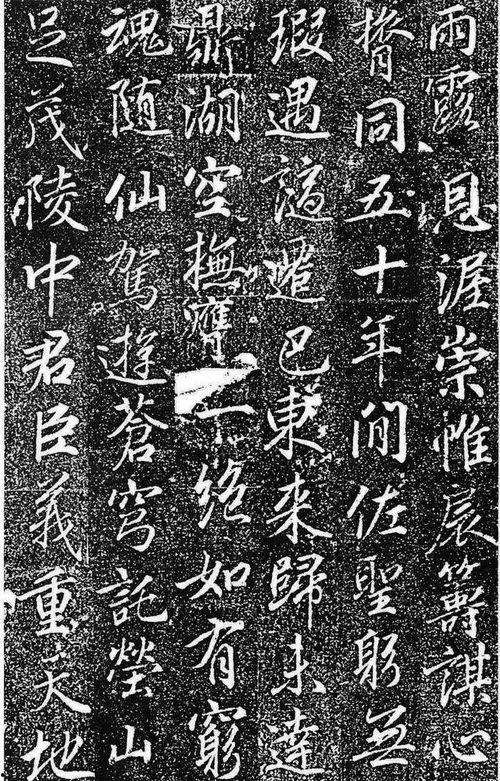 雨露恩渥崇帷扆籌謀心
膂同五十年間佐聖躬無
瑕遇謫遷已東來歸未達
鼎湖空撫膺一絶如有窮
魂随仙駕遊蒼穹託塋山
足茂陵中君臣義重天地